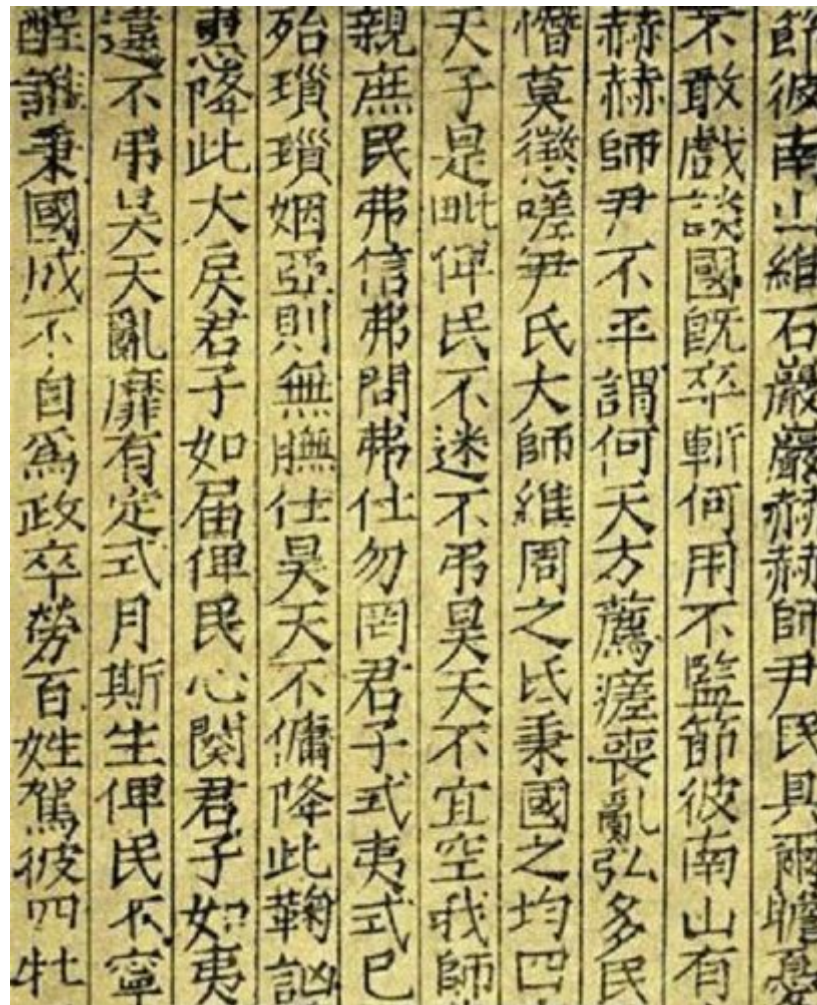 節彼南山維石巖巖赫赫師尹民具爾瞻憂
不敢戲談國旣卒斬何用不監節彼南山有
赫赫師尹不平謂何天方薦瘥喪亂弘多民
憯莫懲嗟尹氏大師維周之氐秉國之均四
天子是毗俾民不迷不弔昊天不宜空我師
親庶民弗信弗問弗仕勿罔君子式夷式已
殆瑣瑣姻亞則無膴仕昊天不傭降此鞠訩
惠降此大戾君子如届俾民心闋君子如夷
違不弔昊天亂靡有定式月斯生俾民不寧
酲誰秉國成不自爲政卒勞百姓駕彼四牡